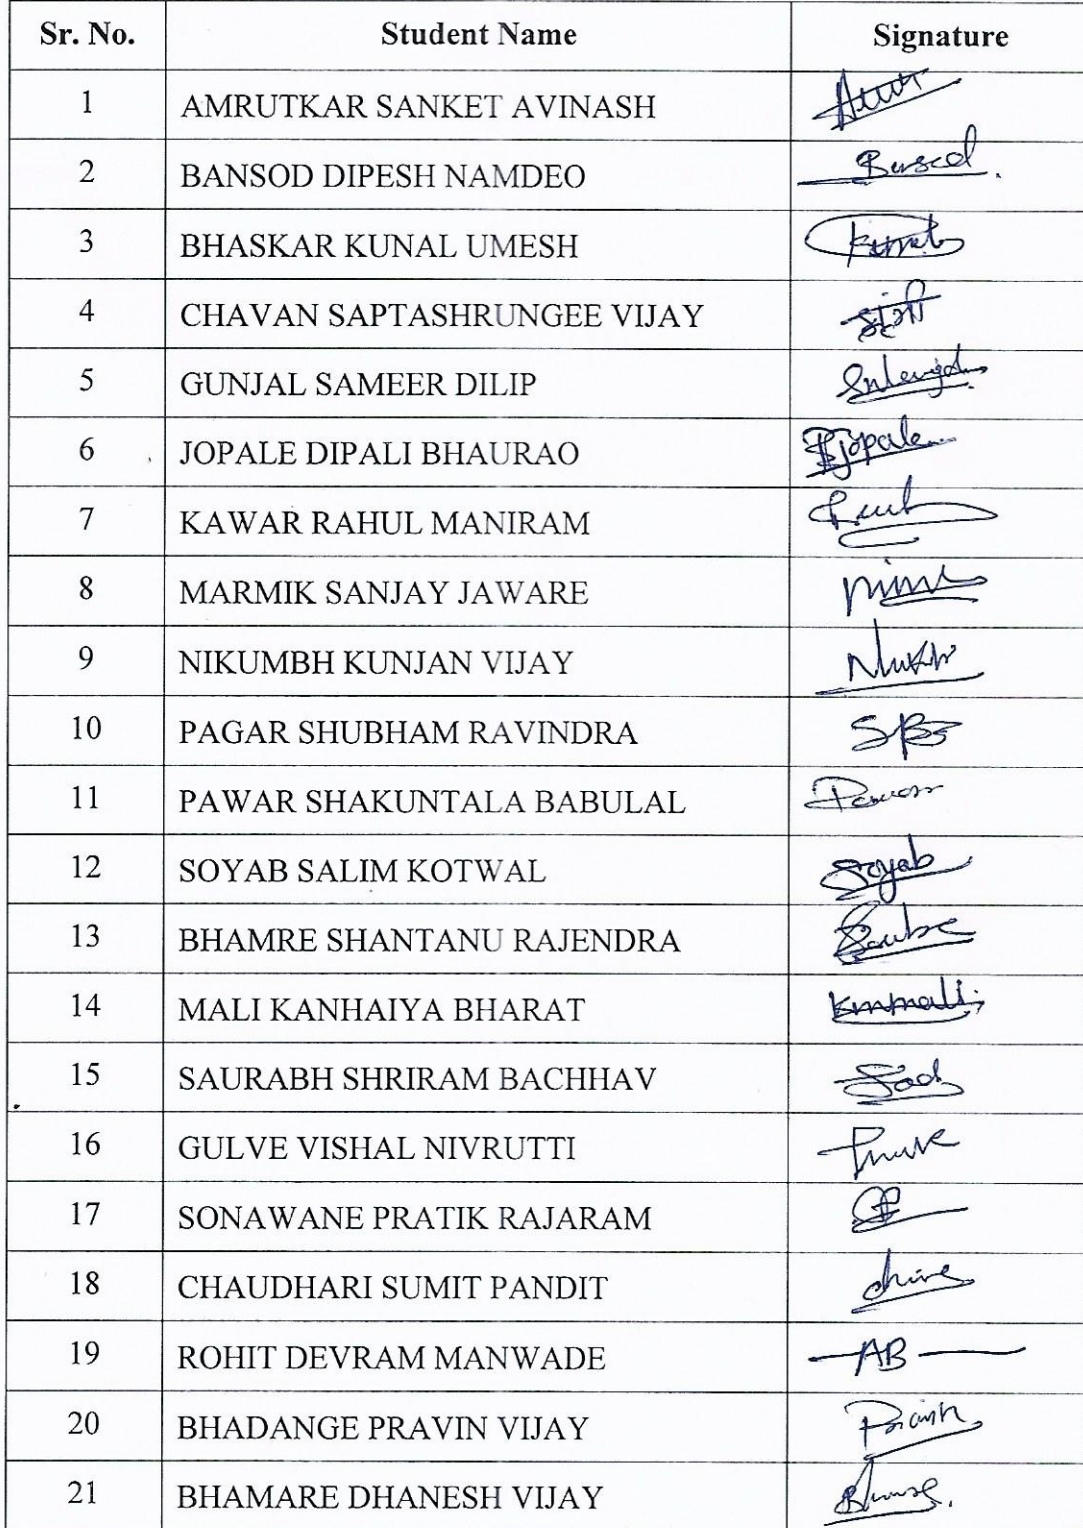 Sr. No. Student Name Signature
1 AMRUTKAR SANKET AVINASH
2 BANSOD DIPESH NAMDEO
3 BHASKAR KUNAL UMESH Kunal
4 CHAVAN SAPTASHRUNGEE VIJAY
5 GUNJAL SAMEER DILIP
6 JOPALE DIPALI BHAURAO Jopale
7 KAWAR RAHUL MANIRAM
8 MARMIK SANJAY JAWARE
9 NIKUMBH KUNJAN VIJAY
10 PAGAR SHUBHAM RAVINDRA
11 PAWAR SHAKUNTALA BABULAL
12 SOYAB SALIM KOTWAL Soyab
13 BHAMRE SHANTANU RAJENDRA
14 MALI KANHAIYA BHARAT
15 SAURABH SHRIRAM BACHHAV
16 GULVE VISHAL NIVRUTTI
17 SONAWANE PRATIK RAJARAM
18 CHAUDHARI SUMIT PANDIT
19 ROHIT DEVRAM MANWADE —AB—
20 BHADANGE PRAVIN VIJAY
21 BHAMARE DHANESH VIJAY